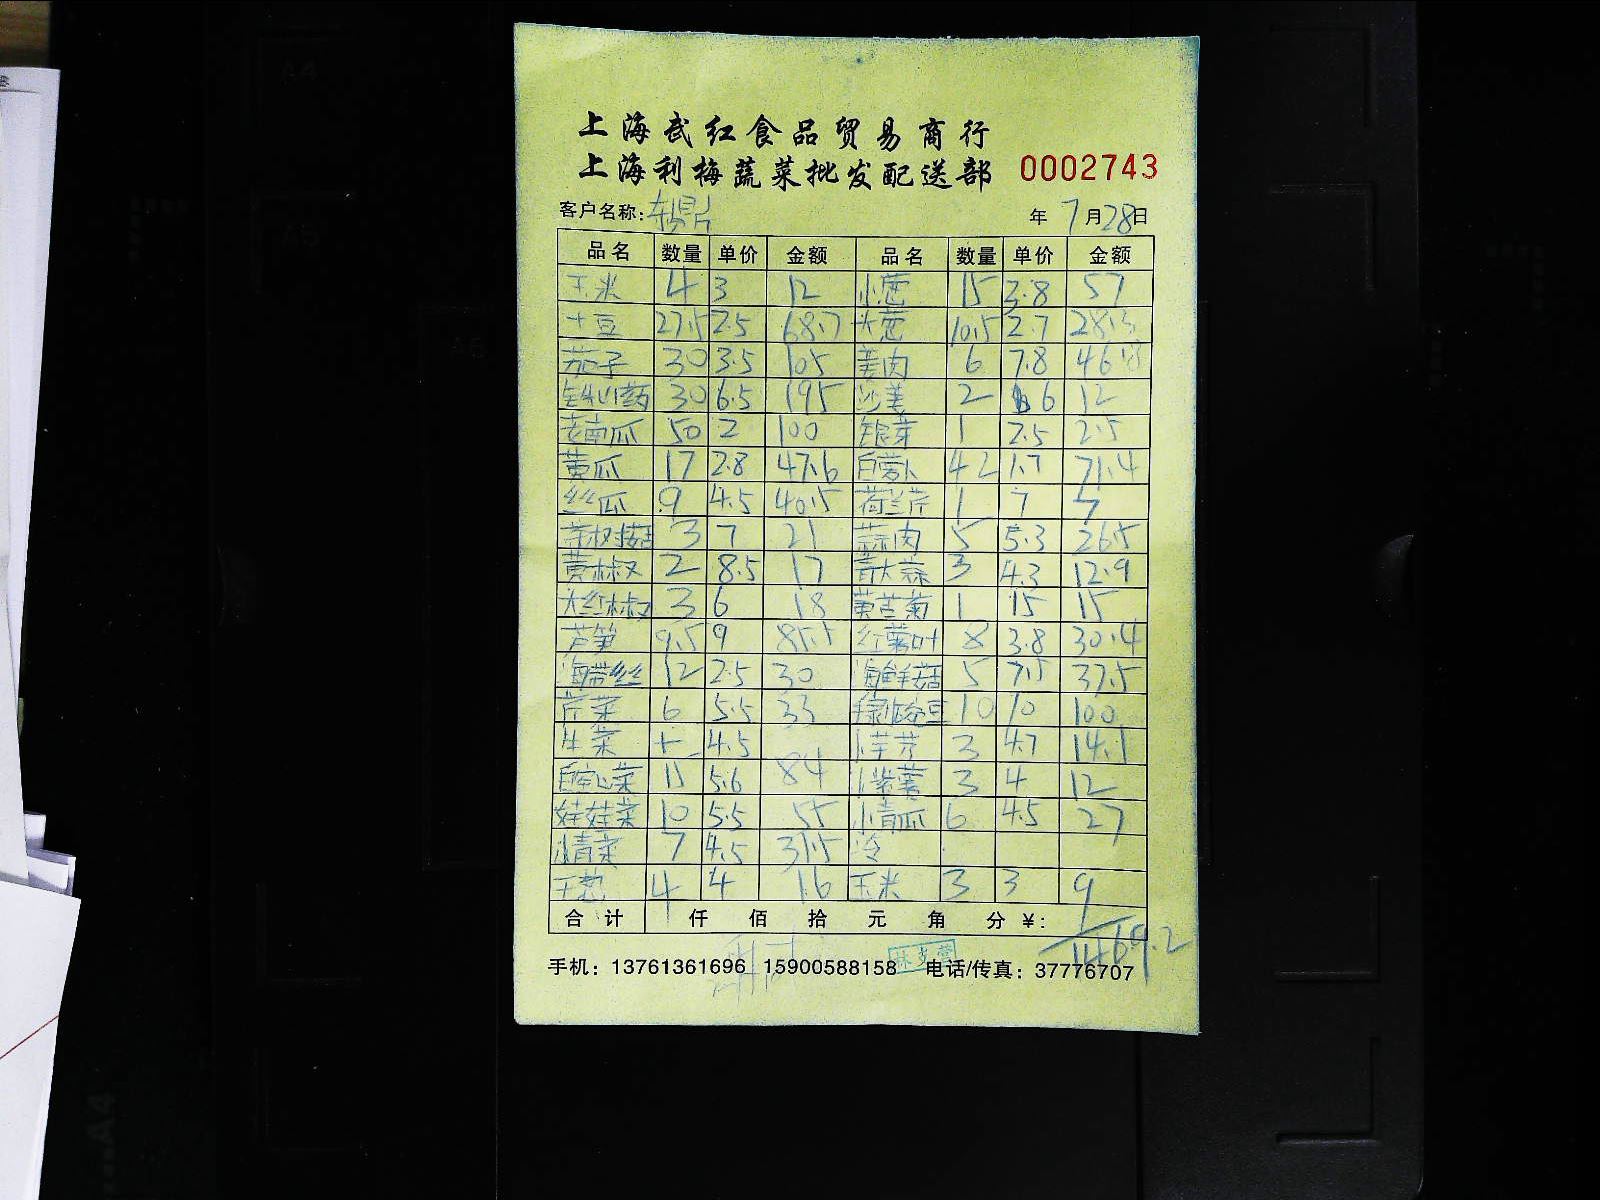 上海武红食品贸易商行
上海利梅蔬菜批发配送部 0002743
客户名称: 年 7月28日
品名 数量 单价 金额 品名 数量 单价 金额
玉米 4 3 12 小葱 15 3.8 57
土豆 27.5 2.5 68.7 大葱 10.5 2.7 28.3
茄子 30 3.5 105 姜肉 6 7.8 46.8
铁山药 30 6.5 195 沙姜 2 6 12
老南瓜 50 2 100 银芽 1 2.5 2.5
黄瓜 17 2.8 47.6 白萝卜 42 1.7 71.4
丝瓜 9 4.5 40.5 荷兰芹 1 7 7
茶树菇 3 7 21 蒜肉 5 5.3 26.5
黄椒 2 8.5 17 青大蒜 3 4.3 12.9
大红椒 3 6 18 黄苦菊 1 15 15
芦笋 9.5 9 85.5 红薯叶 8 3.8 30.4
海带丝 12 2.5 30 海鲜菇 5 7.5 37.5
芹菜 6 5.5 33 10 10 100
生菜 4.5 小芋艿 3 4.7 14.1
白空心菜 15 5.6 84 小紫薯 3 4 12
娃娃菜 10 5.5 55 小青瓜 6 4.5 27
小青菜 7 4.5 31.5 冷
干葱 4 4 16 玉米 3 3 9
合计 仟 佰 拾 元 角 分 ¥: 1469.2
手机: 13761361696 15900588158 电话/传真: 37776707